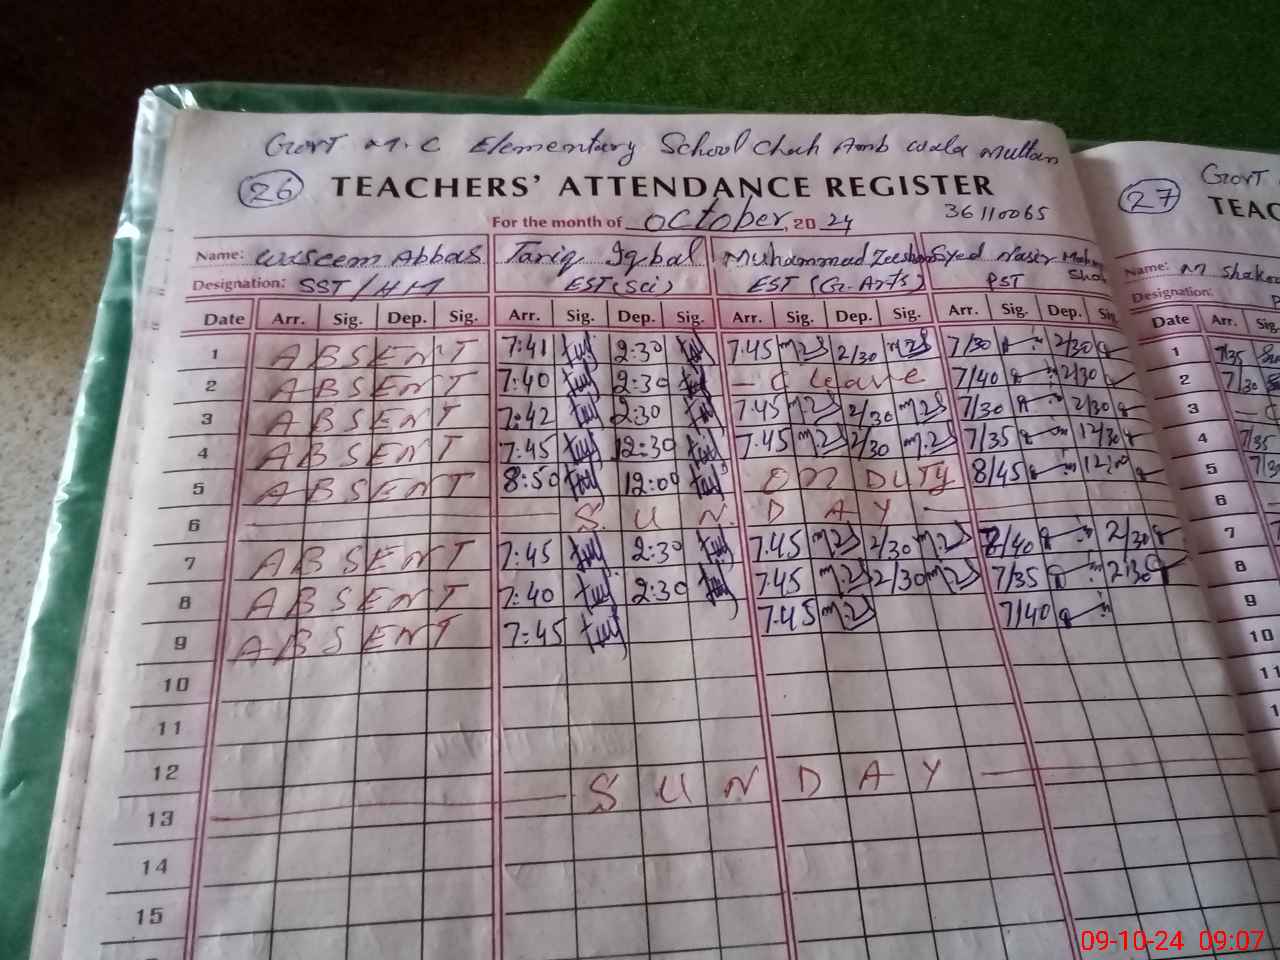 Govt M.C Elementary School Chah Amb wala Multan
26 TEACHERS' ATTENDANCE REGISTER
For the month of October, 20 24 36110065
Name: Waseem Abbas Tariq Iqbal Muhammad Zeeshan Syed Nasir
Designation: SST/HM EST(Sci) EST (Gr. Arts) PST
Date Arr. Sig. Dep. Sig. Arr. Sig. Dep. Sig. Arr. Sig. Dep. Sig. Arr. Sig. Dep. Sig.
1 ABSENT 7:41 2:30 7.45 2/30 7/30 2/30
2 ABSENT 7:40 2:30 C leave 7/40 2/30
3 ABSENT 7:42 2:30 7.45 2/30 7/30 2/30
4 ABSENT 7:45 12:30 7.45 2/30 7/35 12/30
5 ABSENT 8:50 12:00 ON DUTY 8/45
6 SUNDAY
7 ABSENT 7:45 2:30 7.45 2/30 7/40 2/30
8 ABSENT 7:40 2:30 7.45 2/30 7/35 2/30
9 ABSENT 7:45 7.45 7/40
10
11
12
13 SUNDAY
14
15
27 Govt
TEAC
Name: M Shak
Designation:
Date Arr.
1 7/35
2 7/30
3
4 7/35
5
6
7
8
9
10
11
09-10-24 09:07